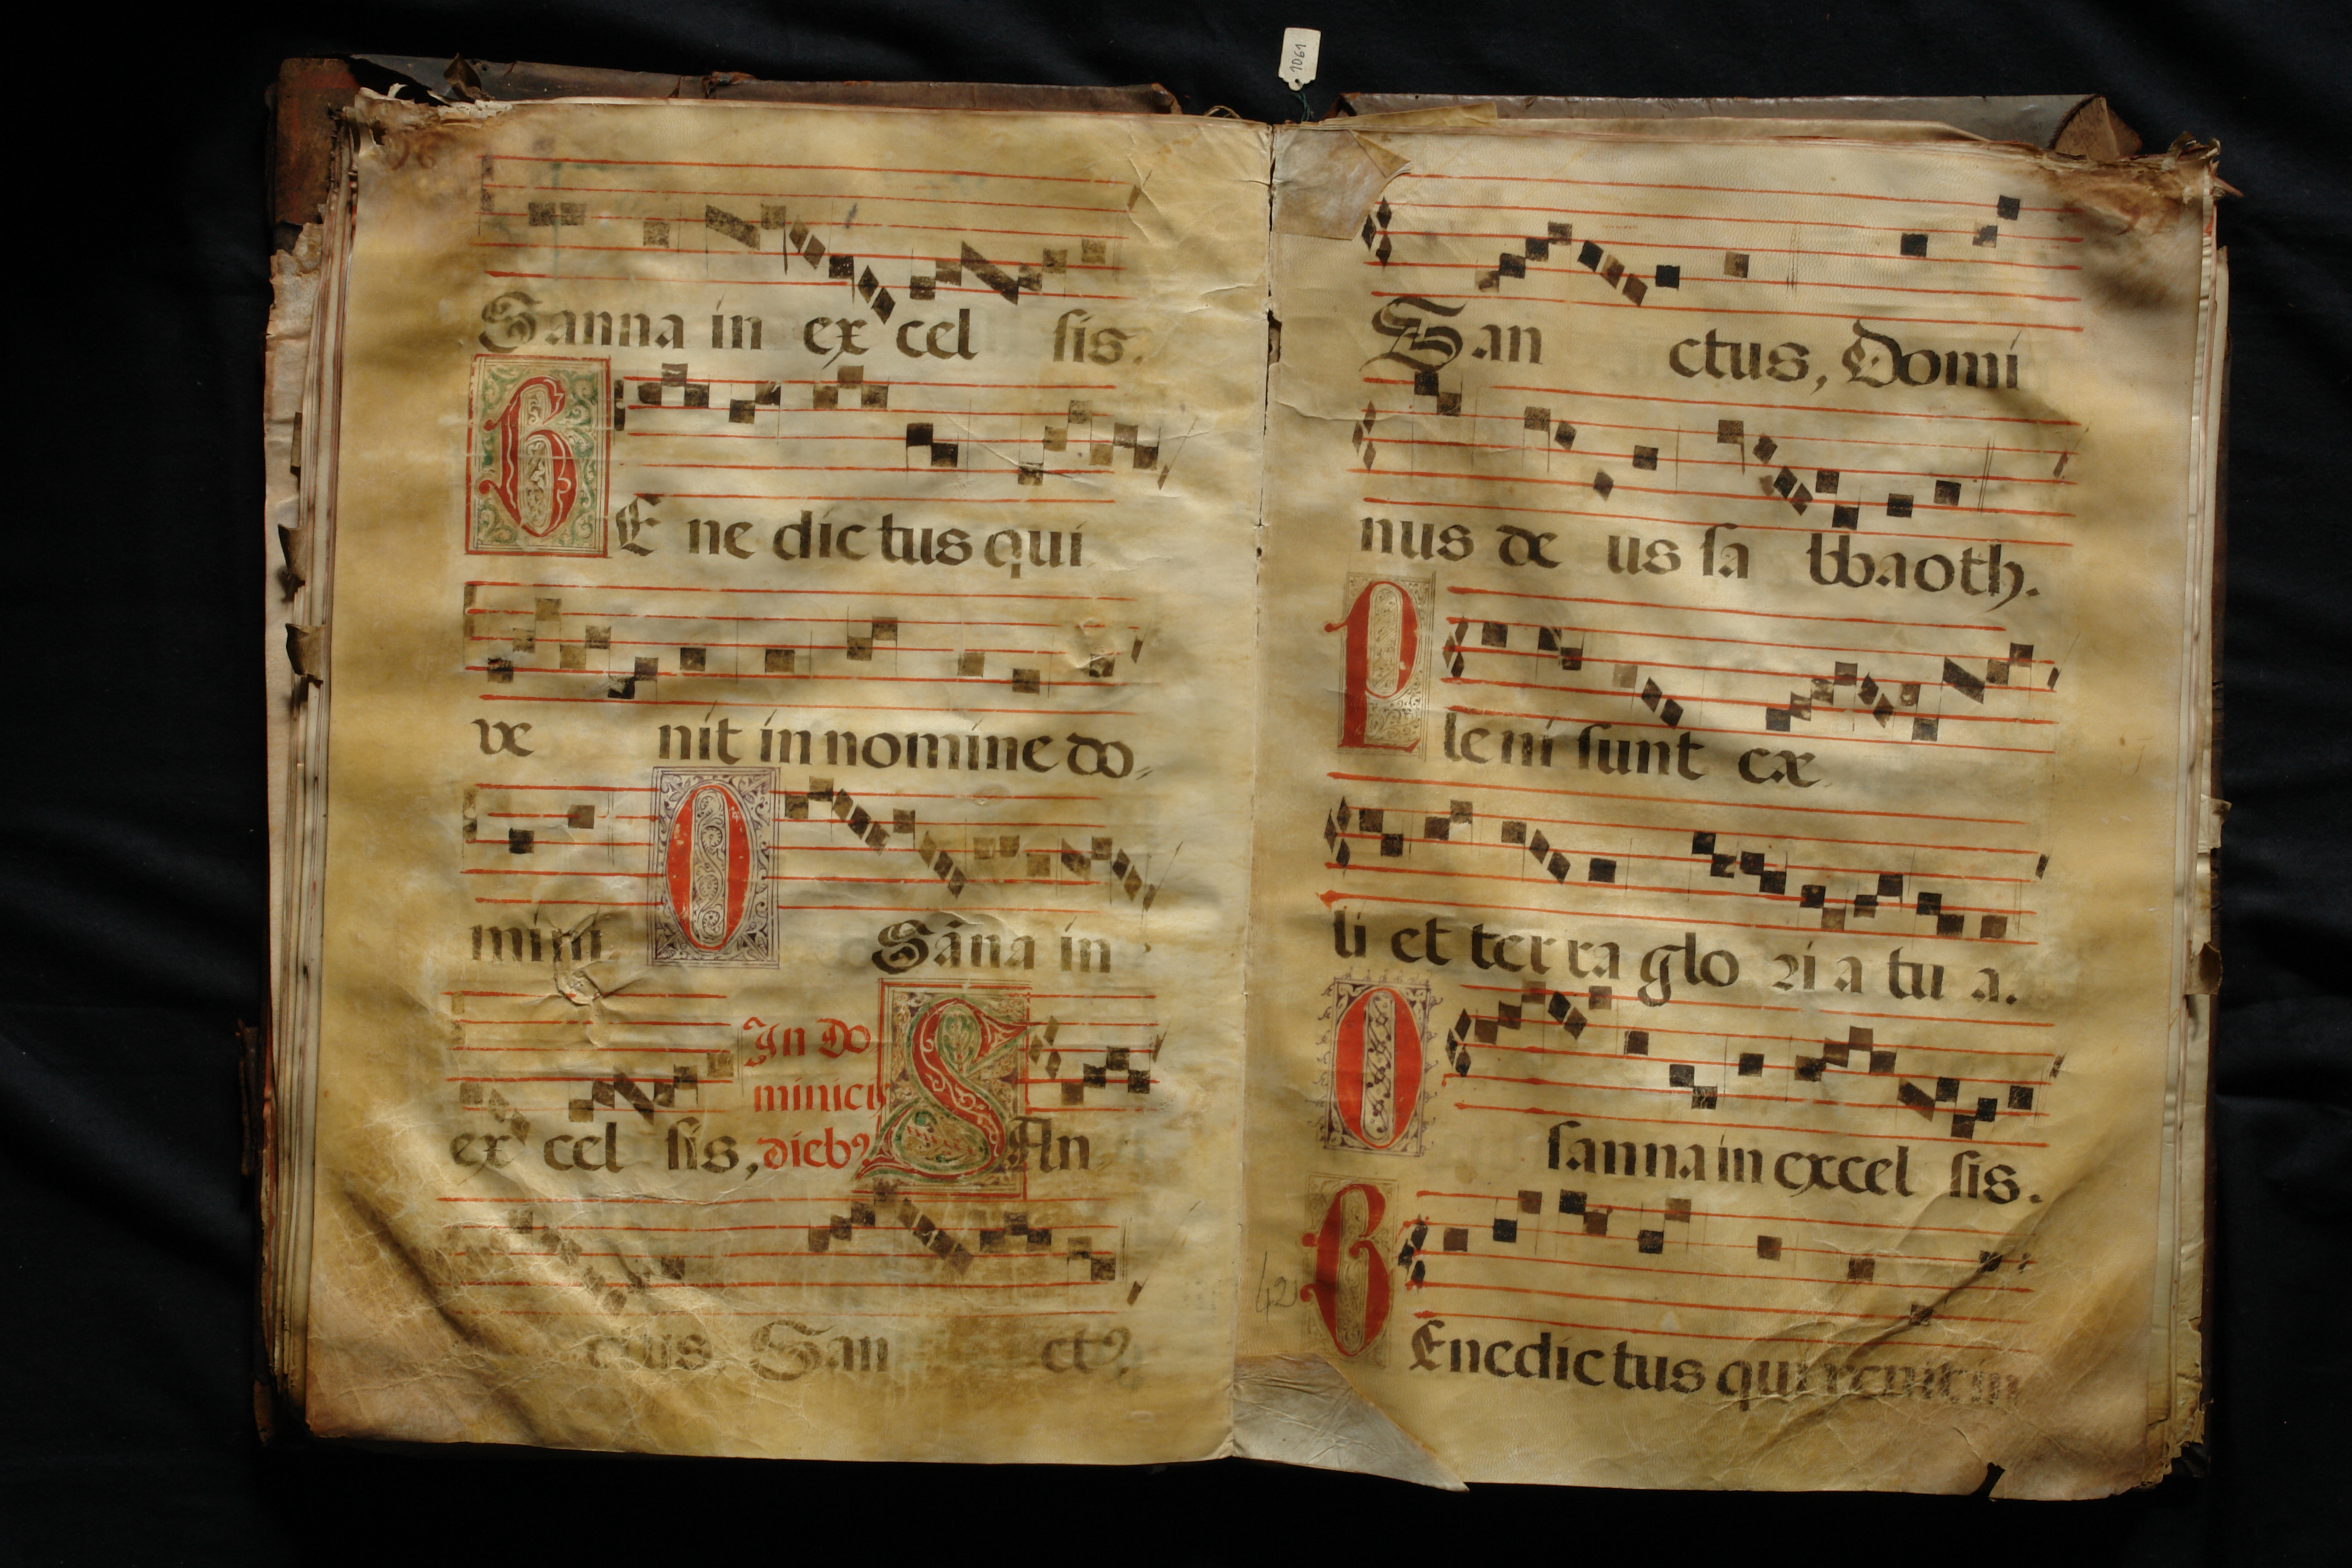 1061
Sanna in ex cel sis.
BE ne dic tus qui
ve nit in nomine do,
mini. O Sãna in
ex cel sis, In Do
minicis
dieb9 SAn
ctus San ct9
San ctus, Domi
nus de us sa bbaoth.
Pleni sunt cæ
li et ter ra glo ri a tu a.
O sanna in excel sis.
42
BEnedic tus qui venit in